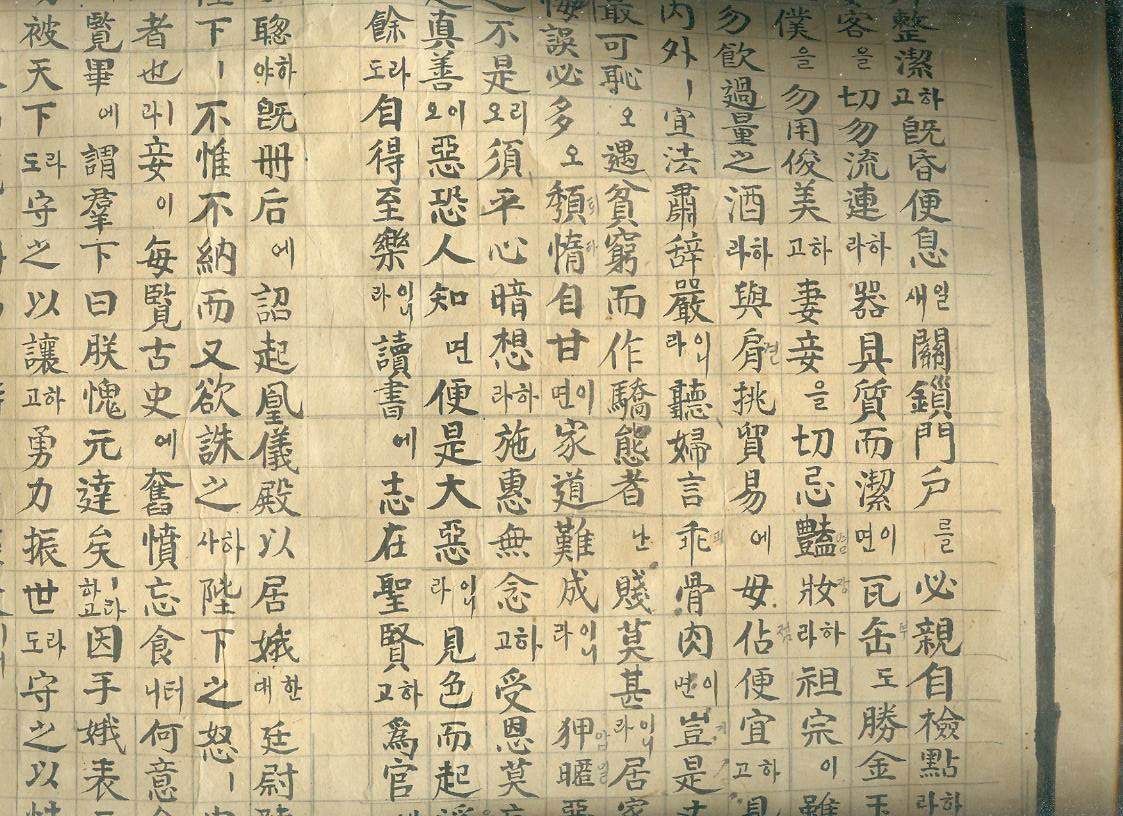 整潔하고旣昏便息일새關鎖門戶를必親自檢點하라
客을切勿流連하라器具質而潔이면瓦缶부도勝金玉
僕을勿用俊美하고妻妾을切忌豔염妝장하라祖宗이雖
勿飮過量之酒하라與肩견挑貿易에毋佔점便宜하고見
內外ㅣ宜法肅辭嚴이니라聽婦言乖괴骨肉이면豈기是丈
最可恥오遇貧窮而作驕態者난賤莫甚이니라居家
悔誤必多오頹퇴惰타自甘이면家道難成이니라狎압暱일惡
不是리오須平心暗想하라施惠無念하고受恩莫
眞善이오惡恐人知면便是大惡이니라見色而起淫
餘라도自得至樂이니라讀書에志在聖賢하고爲官
聰하야旣冊后에詔起凰儀殿以居娥한대廷尉
陛下ㅣ不惟不納而又欲誅之하사陛下之怒ㅣ
者也ㅣ라妾이每覽古史에奮憤忘食터니何意
覽畢에謂羣下曰朕愧元達矣ㅣ라하고因手娥表
被天下라도守之以讓하고勇力振世라도守之以怯